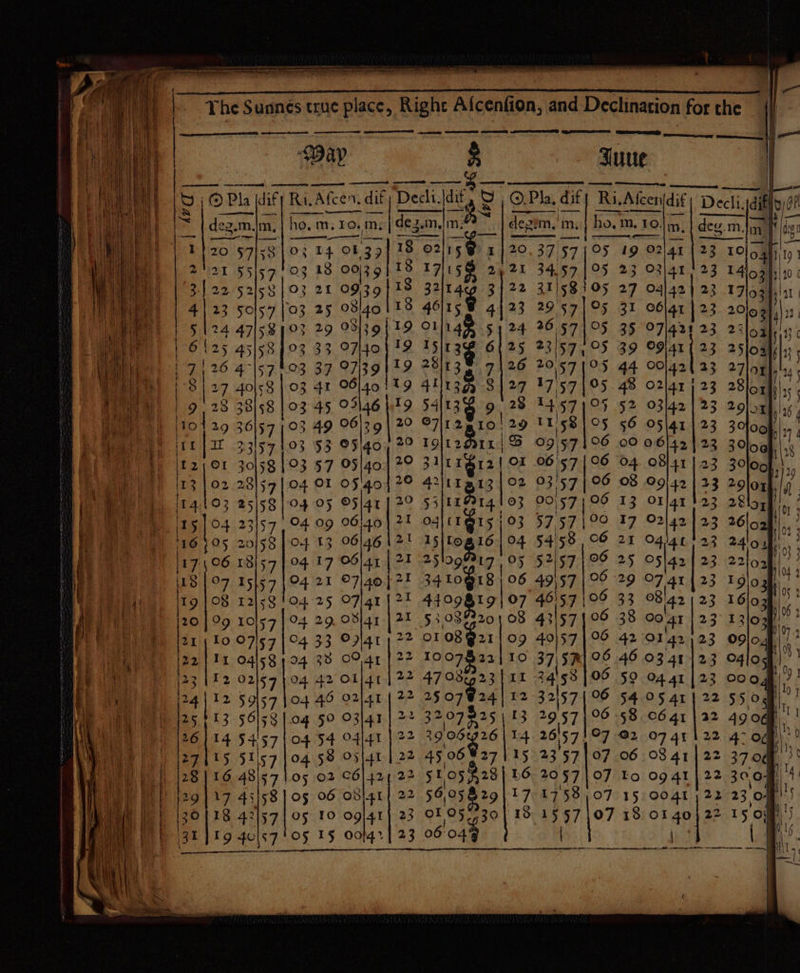 The Sunnes true place, Right Ascension, and Declination for the
May June
☉ Pla dif Ri. Ascen. dif Decli. dif ☉. Pla. dif Ri. Ascen dif Decli. dif
deg. m. m. ho. m. 10. m. deg. m. m. degr m. m. ho. m. 10. m. deg. m. m
1 20 57 58 03 14 01 39 18 02 15 1 20 37 57 05 19 02 41 23 10 04
2 21 55 57 03 18 00 39 18 17 15 2 21 34 57 05 23 03 41 23 14 03
3 22 52 58 03 21 09 39 18 32 14 3 22 31 58 05 27 04 42 23 17 03
4 23 50 57 03 25 08 40 18 46 15 4 23 29 57 05 31 06 41 23 20 03
5 24 47 58 03 29 08 39 19 01 14 5 24 26 57 05 35 07 42 23 23 02
6 25 45 58 03 33 07 40 19 15 13 6 25 23 57 05 39 09 41 23 25 02
7 26 43 57 03 37 07 39 19 28 13 7 26 20 57 05 44 00 42 23 27 01
8 27 40 58 03 41 06 40 19 41 13 8 27 17 57 05 48 02 41 23 28 01
9 28 38 58 03 45 05 46 19 54 13 9 28 14 57 05 52 03 42 23 29 01
10 29 36 57 03 49 06 39 20 07 12 10 29 11 58 05 56 05 41 23 30 00
11 II 33 57 03 53 05 40 20 19 12 11 ♋ 09 57 06 00 06 42 23 30 00
12 01 30 58 03 57 05 40 20 31 11 12 01 06 57 06 04 08 41 23 30 00
13 02 28 57 04 01 05 40 20 42 11 13 02 03 57 06 08 09 42 23 29 01
14 03 25 58 04 05 05 41 20 53 11 14 03 00 57 06 13 01 41 23 28 01
15 04 23 57 04 09 06 40 21 04 11 15 03 57 57 06 17 02 42 23 26 02
16 05 20 58 04 13 06 46 21 15 10 16 04 54 58 06 21 04 41 23 24 02
17 06 18 57 04 17 06 41 21 25 09 17 05 52 57 06 25 05 42 23 22 02
18 07 15 57 04 21 07 40 21 34 10 18 06 49 57 06 29 07 41 23 19 03
19 08 12 58 04 25 07 41 21 44 09 19 07 46 57 06 33 08 42 23 16 03
20 09 10 57 04 29 08 41 21 53 08 20 08 43 57 06 38 00 41 23 13 03
21 10 07 57 04 33 09 41 22 01 08 21 09 40 57 06 42 01 42 23 09 04
22 11 04 58 04 38 00 41 22 10 07 22 10 37 58 06 46 03 41 23 04 03
23 12 02 57 04 42 01 41 22 47 08 23 11 34 58 06 50 04 41 23 00 04
24 12 59 57 04 46 02 41 22 25 07 24 12 32 57 06 54 05 41 22 55 05
25 13 56 58 04 50 03 41 22 32 07 25 13 29 57 06 58 06 41 22 49 06
26 14 54 57 04 54 04 41 22 39 06 26 14 26 57 07 02 07 41 22 43 06
27 15 51 57 04 58 05 41 22 45 06 27 15 23 57 07 06 08 41 22 37 06
28 16 48 57 05 02 06 42 22 51 05 28 16 20 57 07 10 09 41 22 30 07
29 17 45 58 05 06 08 41 22 56 05 29 17 17 58 07 15 00 41 22 23 0
30 18 43 57 05 10 09 41 23 01 05 30 18 15 57 07 18 01 40 22 15 0
31 19 40 57 05 15 00 42 23 06 04